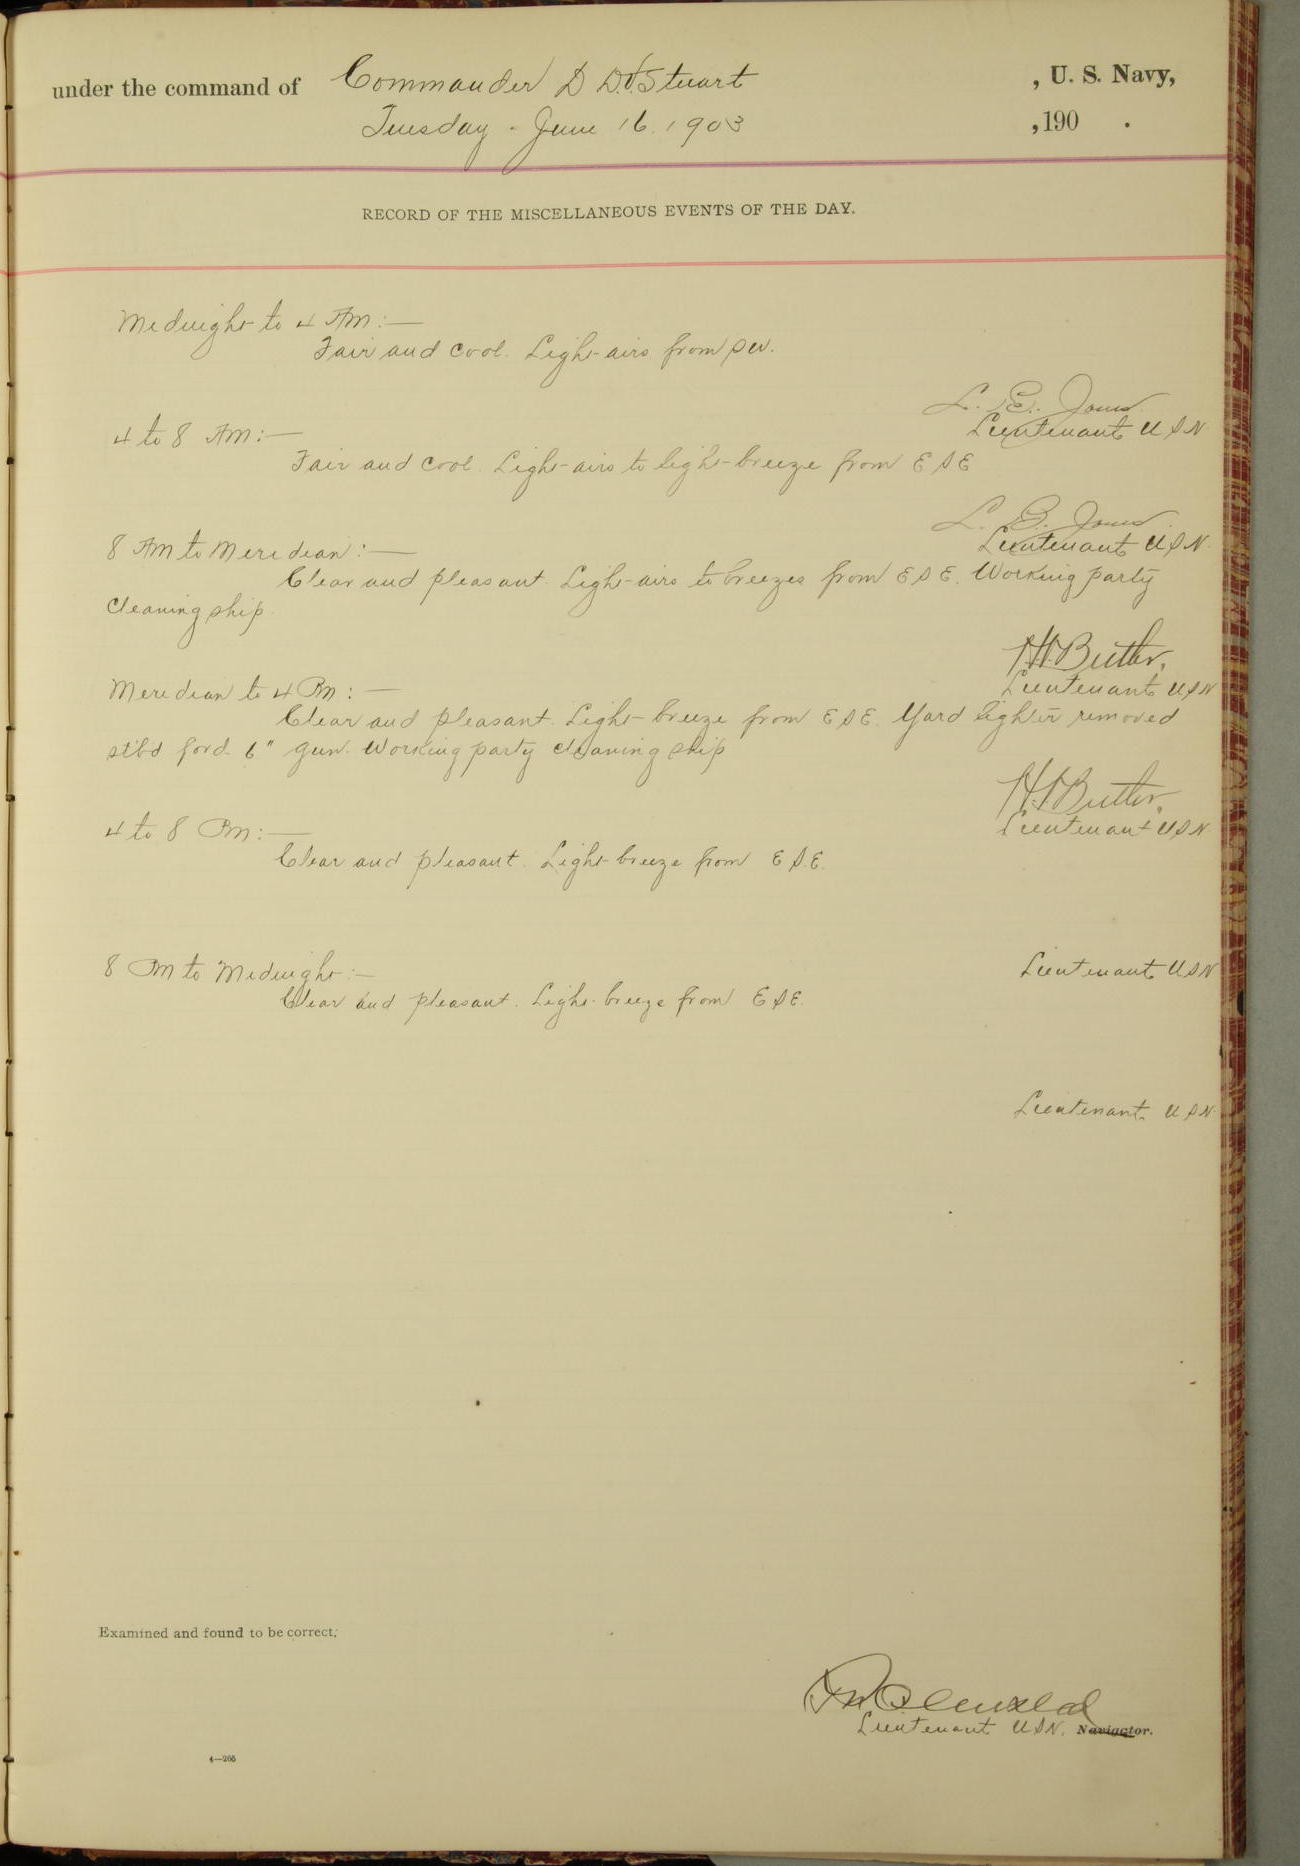 under the command of Commander D D.V. Stuart , U. S. Navy,
Tuesday - June 16. 1903 , 190 .
RECORD OF THE MISCELLANEOUS EVENTS OF THE DAY.
Midnight to 4 AM:—
Fair and cool. Light airs from SW.
L. E. Jones
Lieutenant USN
4 to 8 AM:—
Fair and cool. Light airs to light breeze from ESE
L. E. Jones
Lieutenant USN.
8 AM to Meridian:—
Clear and pleasant. Light airs to breezes from ESE. Working party
cleaning ship.
Butler.
Lieutenant USN
Meridian to 4 PM:—
Clear and pleasant. Light breeze from ESE. Yard lighter removed
stb'd for'd. 6" gun. Working party cleaning ship
Butler.
Lieutenant USN
4 to 8 PM:—
Clear and pleasant. Light breeze from ESE.
Lieutenant USN
8 PM to Midnight:—
Clear and pleasant. Light breeze from ESE.
Lieutenant USN
Examined and found to be correct.
Lieutenant USN. Navigator.
4—265